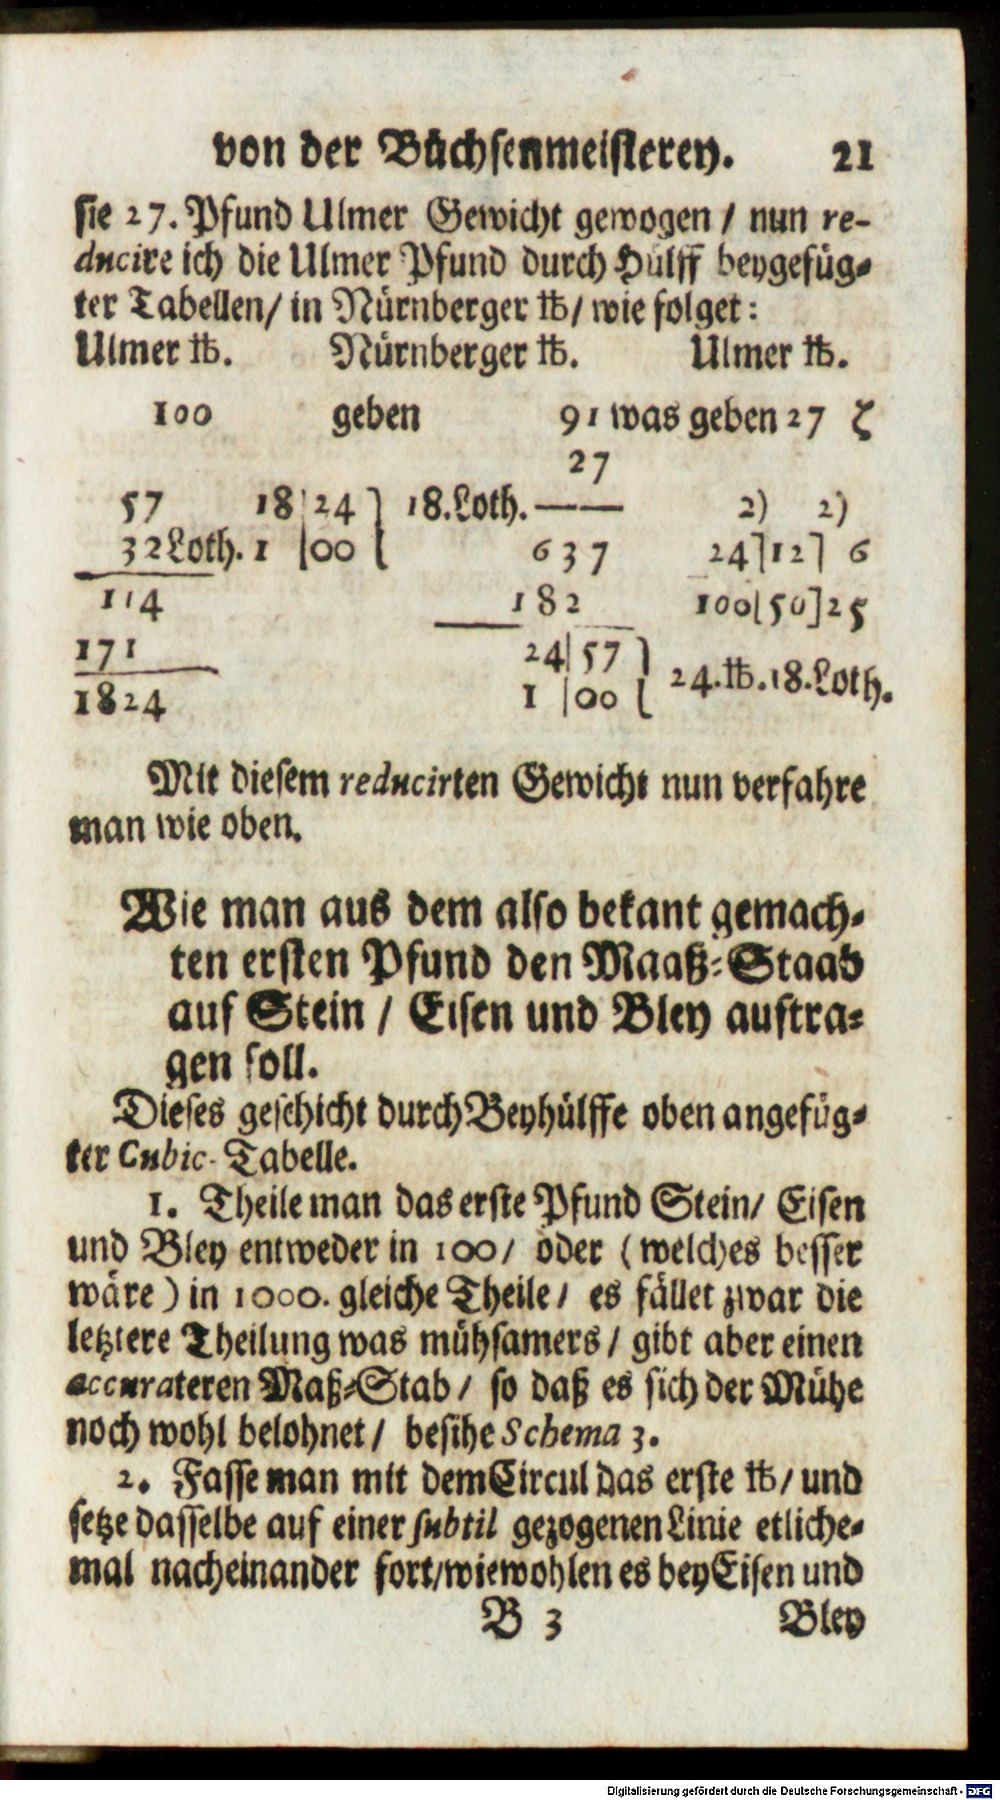 von der Büchsenmeisterey. 21
sie 27. Pfund Ulmer Gewicht gewogen / nun re-
ducire ich die Ulmer Pfund durch Hülff beygefüg-
ter Tabellen/ in Nürnberger ℔/ wie folget:
Ulmer ℔. Nürnberger ℔. Ulmer ℔.
100 geben 91 was geben 27 ζ
27
57 18|24} 18.Loth. —— 2) 2)
32 Loth. 1 |00{ 637 24]12] 6
114 182 100[50]25
171 24|57} 24.℔.18.Loth.
1824 1 |00{
Mit diesem reducirten Gewicht nun verfahre
man wie oben.
Wie man aus dem also bekant gemach-
ten ersten Pfund den Maaß-Staab
auf Stein / Eisen und Bley auftra-
gen soll.
Dieses geschicht durch Beyhülffe oben angefüg-
ter Cubic-Tabelle.
1. Theile man das erste Pfund Stein/ Eisen
und Bley entweder in 100/ oder (welches besser
wäre) in 1000. gleiche Theile/ es fället zwar die
letztere Theilung was mühsamers / gibt aber einen
accurateren Maß-Stab / so daß es sich der Mühe
noch wohl belohnet / besihe Schema 3.
2. Fasse man mit dem Circul das erste ℔/ und
setze dasselbe auf einer subtil gezogenen Linie etliche-
mal nacheinander fort/wiewohlen es bey Eisen und
B 3 Bley
Digitalisierung gefördert durch die Deutsche Forschungsgemeinschaft - DFG